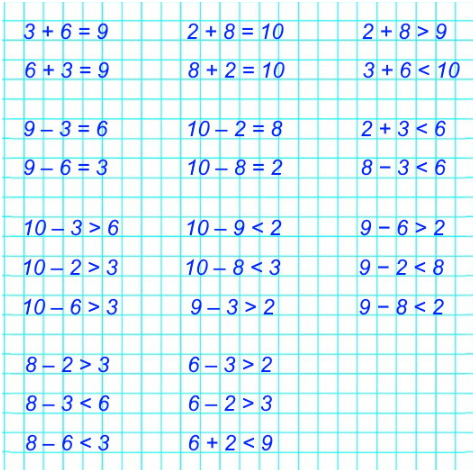 3 + 6 = 9
6 + 3 = 9
9 – 3 = 6
9 – 6 = 3
10 – 3 > 6
10 – 2 > 3
10 – 6 > 3
8 – 2 > 3
8 – 3 < 6
8 – 6 < 3
2 + 8 = 10
8 + 2 = 10
10 – 2 = 8
10 – 8 = 2
10 – 9 < 2
10 – 8 < 3
9 – 3 > 2
6 – 3 > 2
6 – 2 > 3
6 + 2 < 9
2 + 8 > 9
3 + 6 < 10
2 + 3 < 6
8 − 3 < 6
9 − 6 > 2
9 − 2 < 8
9 − 8 < 2